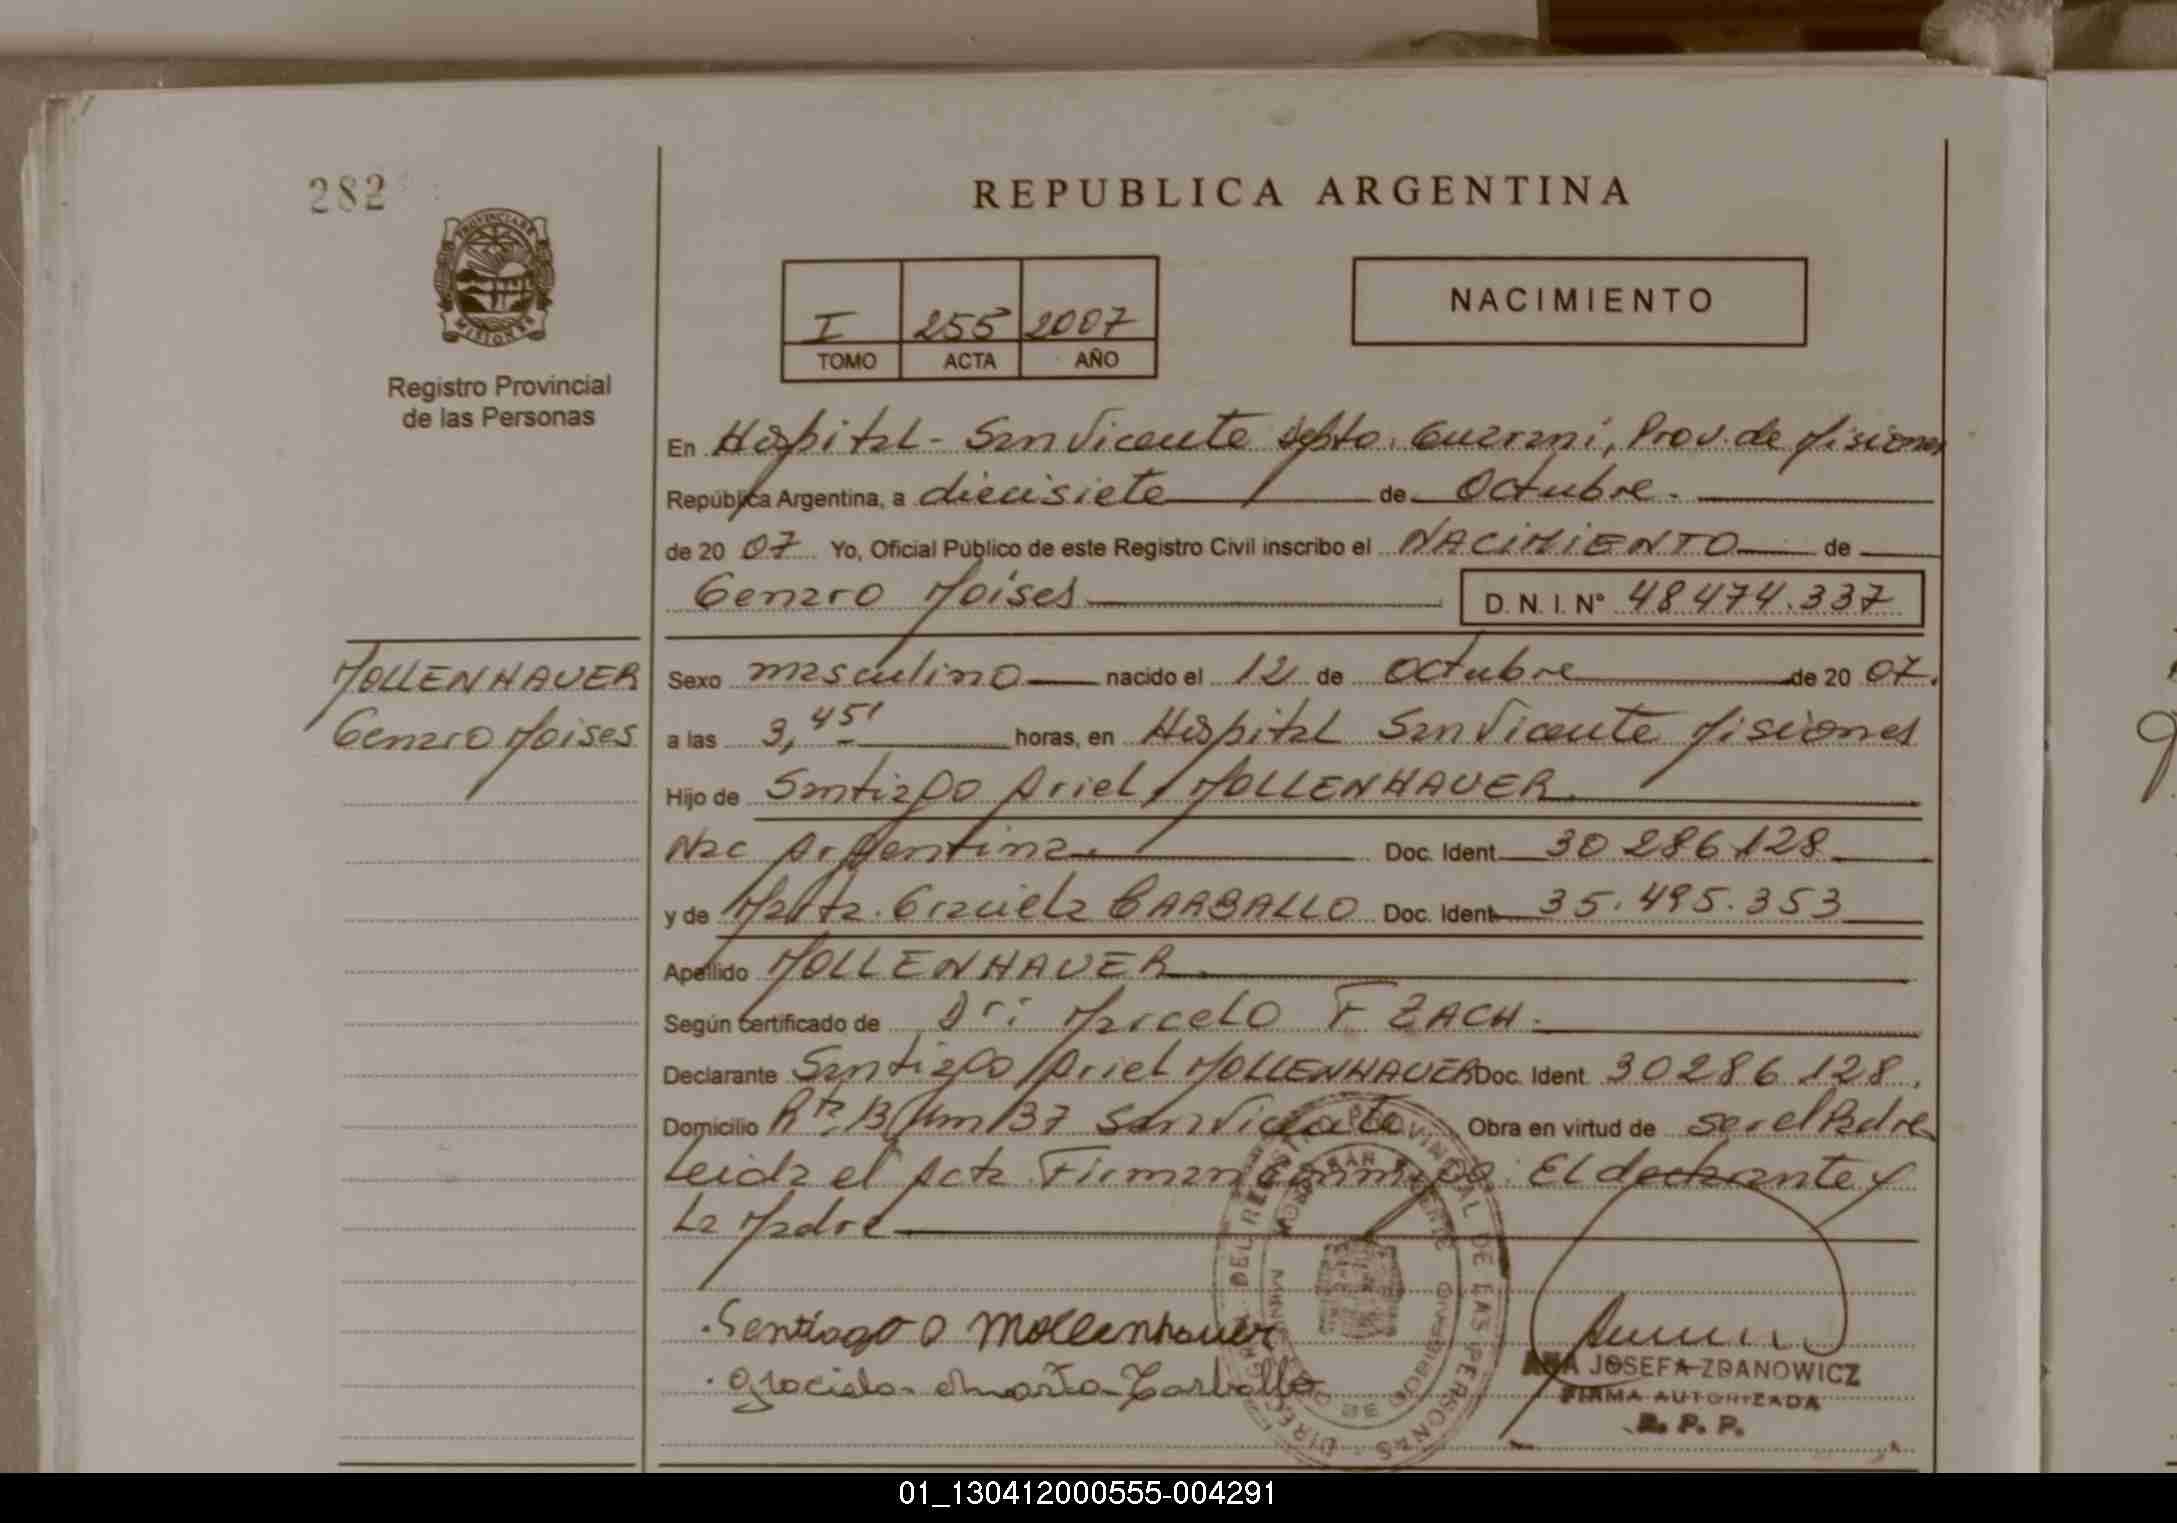 282
REPUBLICA ARGENTINA
PROVINCIA DE
MISIONES
Registro Provincial
de las Personas
I 255 2007
TOMO ACTA AÑO
NACIMIENTO
En Hospital - San Vicente Dpto. Guarani, Prov. de Misiones
República Argentina, a diecisiete de Octubre.
de 20 07 Yo, Oficial Público de este Registro Civil inscribo el NACIMIENTO de
Genaro Moises D. N. I. Nº 48474.337
MOLLENHAUER
Genaro Moises
Sexo masculino nacido el 12 de Octubre de 20 07.
a las 3,45' horas, en Hospital San Vicente Misiones
Hijo de Santiago Ariel MOLLENHAUER.
Nac Argentina. Doc. Ident. 30 286.128
y de Marta Graciela CARBALLO Doc. Ident. 35.495.353
Apellido MOLLENHAUER.
Según certificado de Dr: Marcelo F ZACH.
Declarante Santiago Ariel MOLLENHAUER Doc. Ident. 30286.128.
Domicilio Rta. 13 Km 137 San Vicente Obra en virtud de ser el Padre
Leida el Acta Firman conmigo: El declarante y
La Madre
Santiago A Mollenhauer
Graciela Marta Carballo
ANA JOSEFA ZDANOWICZ
FIRMA AUTORIZADA
R. P. P.
01_130412000555-004291